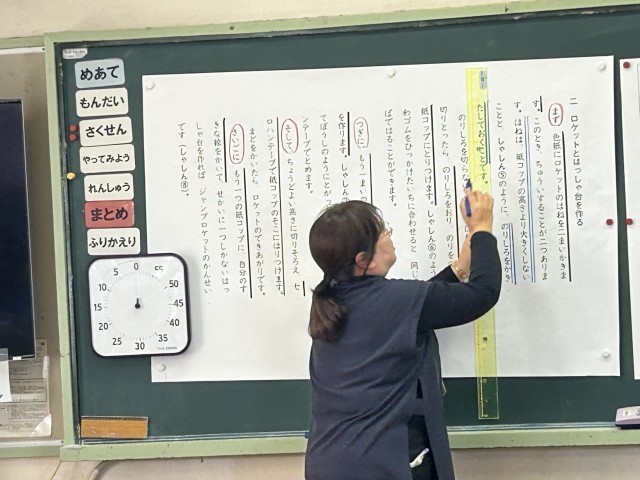 めあて
もんだい
さくせん
やってみよう
れんしゅう
まとめ
ふりかえり
二 ロケットとはっしゃ台を作る
まず 色紙にロケットのはねを二まいかきま
す。このとき、ちゅういすることが二つありま
す。はねは、紙コップの高さより大きくしない
ことと、しゃしん⑤のように、のりしろをかき
たしておくことです。
のりしろを切らな
切りとったら、のりしろをおり、のりを
紙コップにとりつけます。しゃしん⑥のよ
わゴムをひっかけたいちに合わせると、同じ
ばではることができます。
つぎに もう一まい
を作ります。しゃしん⑦
てぼうしのようにとが
ンテープでとめます。
そして ちょうどよい高さに切りそろえ、セ
ロハンテープで紙コップのそこにはりつけます。
まどをかいたら、ロケットのできあがりです。
さいごに もう一つの紙コップに、自分のす
きな絵をかいて、せかいに一つしかないはっ
しゃ台を作れば、ジャンプロケットのかんせい
です（しゃしん⑧）。
5 0 55
10 50
15 45
20 40
25 30 35